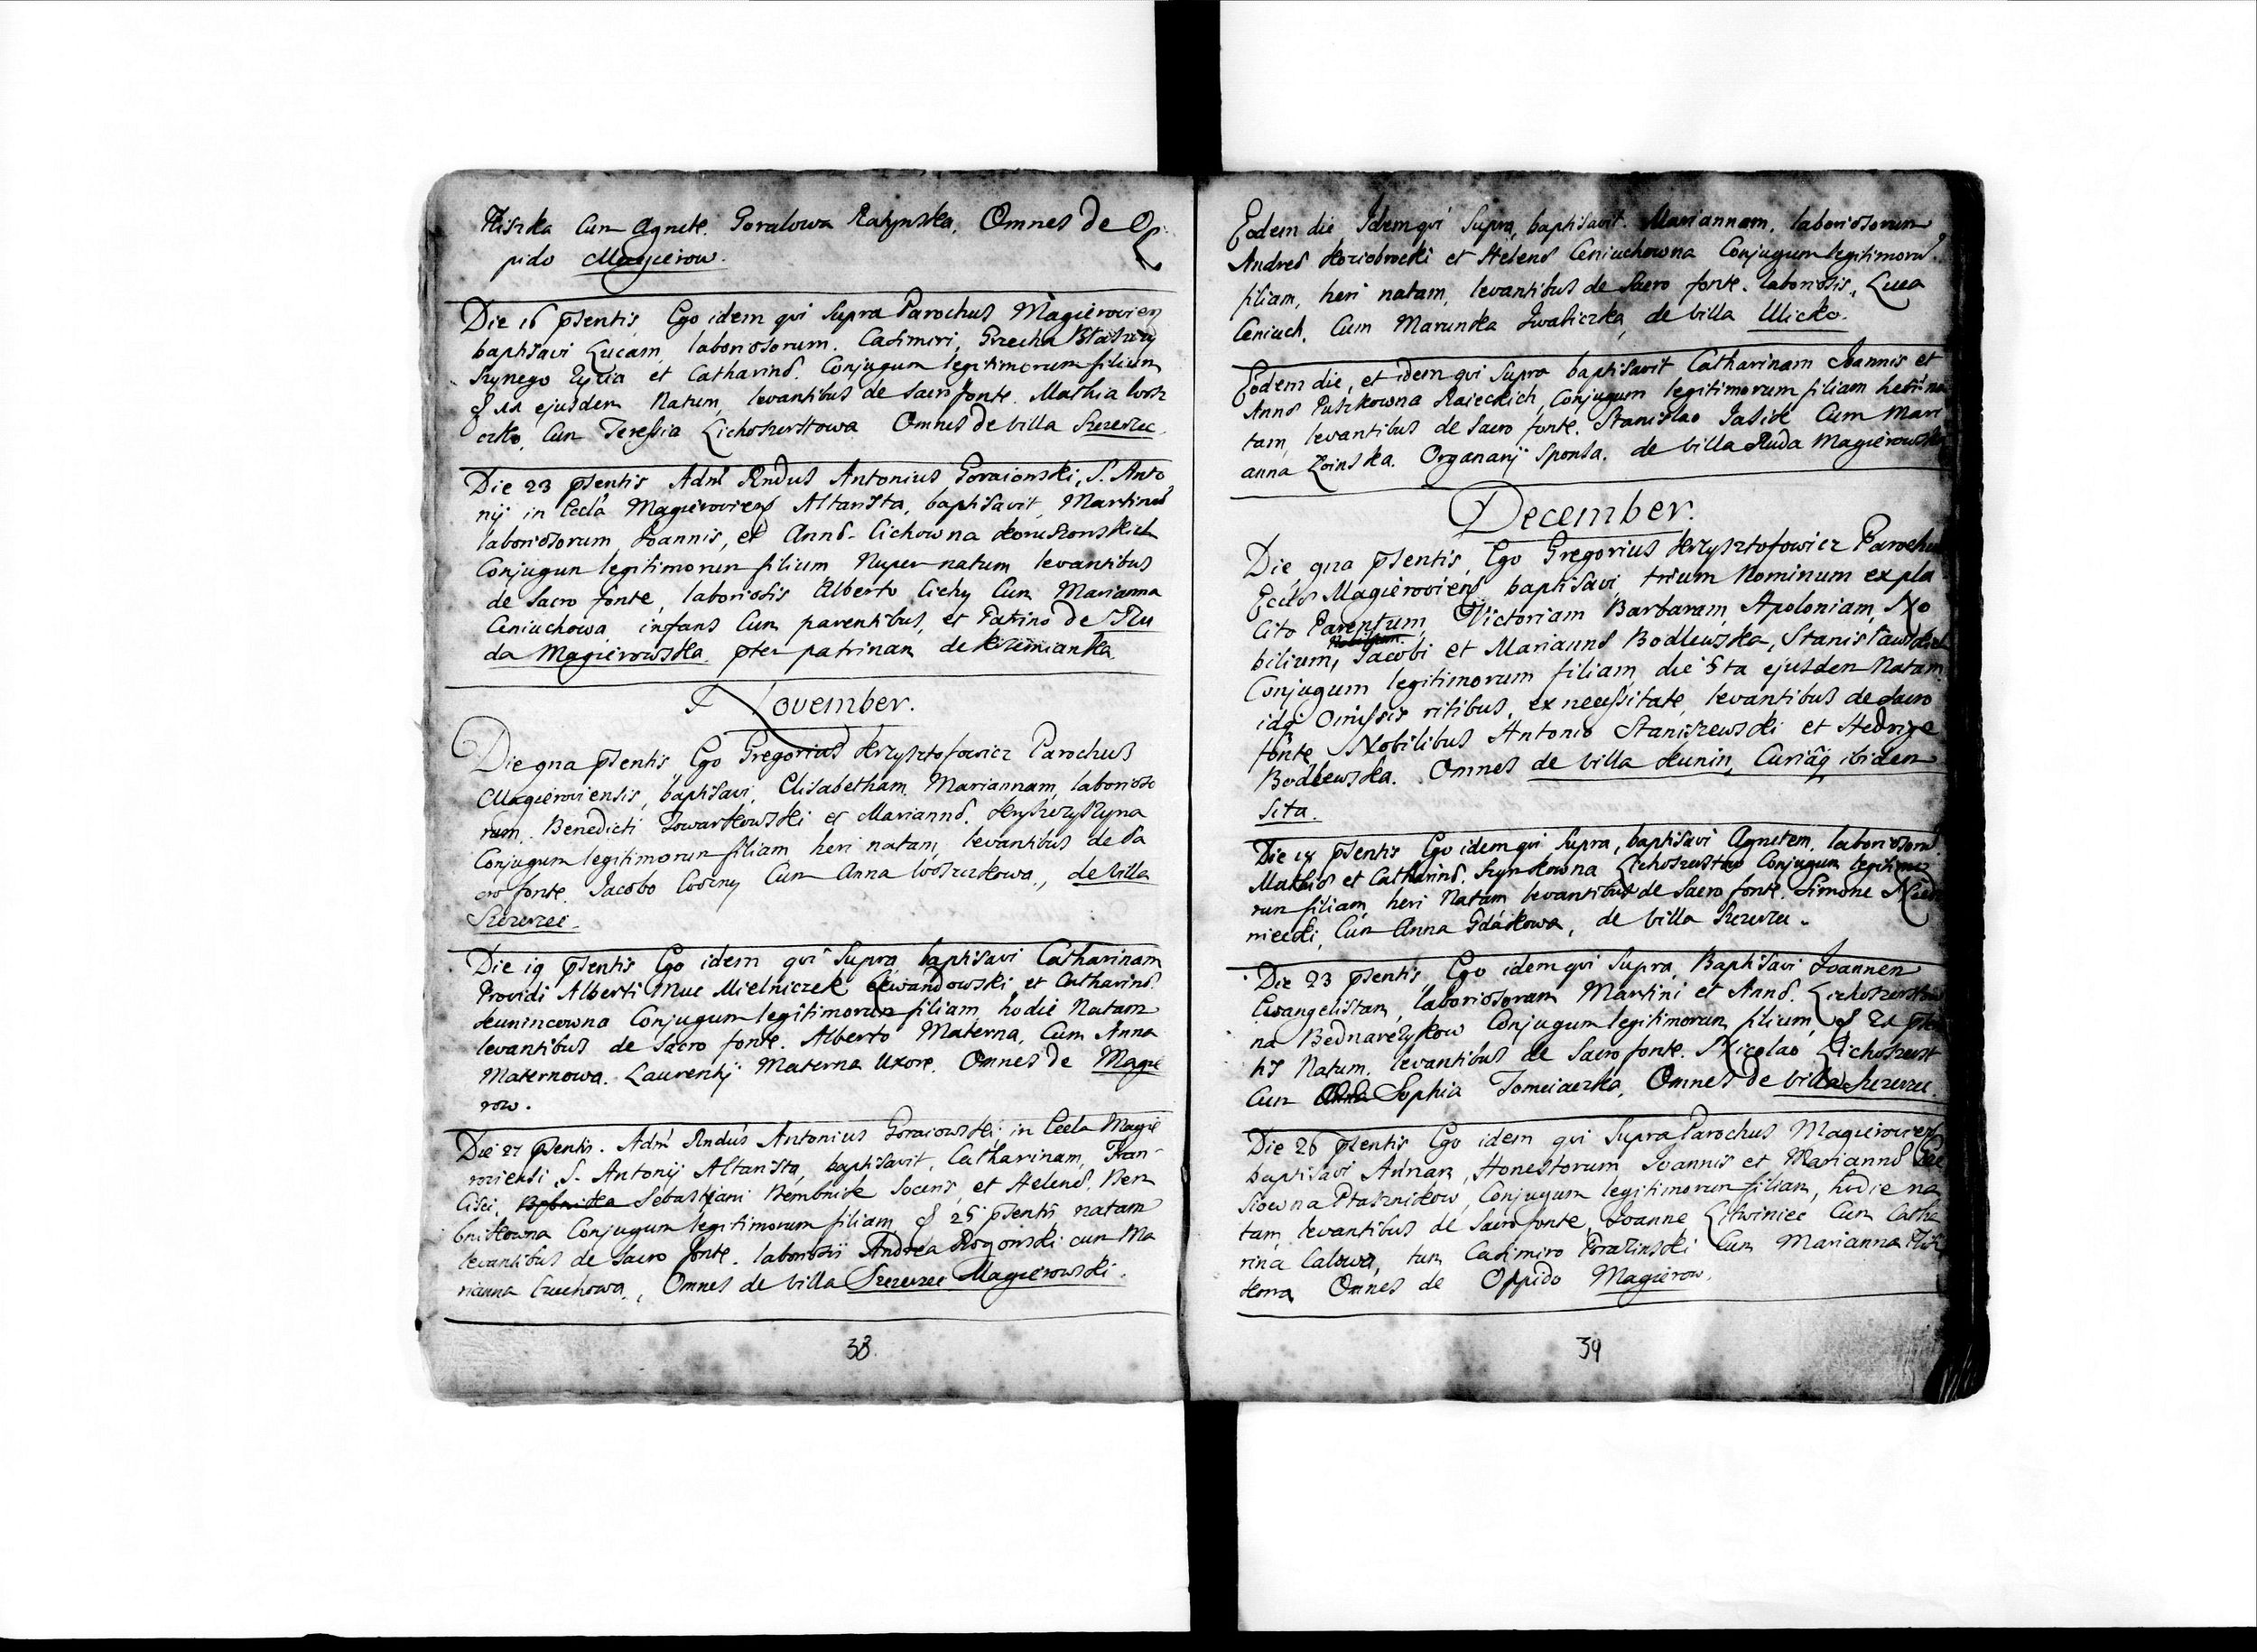 Fliszka Cum Agnete Goralowa Ratynska, Omnes de Op
pido Magierow.
Die 16 pntis, Ego idem qui Supra Parochus Magierovien
baptisavi Lucam, laboriosorum. Casimiri, Grzecha
et Catharinæ. Conjugum legitimorum filium
ejusdem Natum, levantibus de Sacro fonte. Mathia Wosz
czko, Cum Teressia Lichoszerstowa Omnes de villa Szczerzec.
Die 23 pntis Adm Rndus Antonius Goraiowski, S. Anto
nij in Ecclâ Magierovien Altarista, baptisavit, Martinum
laboriosorum Joannis, et Annæ Cichowna Koruszowskich
Conjugum legitimorum filium Nuper natum levantibus
de Sacro fonte, laboriosis Alberto Cichy Cum Marianna
Ceniuchowa, infans Cum parentibus, et Patrino de Ru
da Magierowska. pter patrinam de Krzemianka.
November.
Die 9na pntis Ego Gregorius Krzysztofowicz Parochus
Magieroviensis, baptisavi, Elisabetham Mariannam, laborioso
rum. Benedicti Towarkowski et Mariannæ. Kryszczyszyna
Conjugum legitimorum filiam heri natam, levantibus de Sa
cro fonte. Jacobo Cozny Cum Anna Woszczkowa., de villa
Szczerzec.
Die 19 pntis Ego idem qui Supra baptisavi Catharinam
Providi Alberti Muc Mielniczek Lewandowski et Catharinæ
Kunincowna Conjugum legitimorum filiam, hodie Natam
levantibus de Sacro fonte. Alberto Materna, Cum Anna
Maternowa. Laurentij Materna Uxore. Omnes de Magie
row.
Die 27 pntis. Adm Rndus Antonius Goraiowski, in Eccla Magie
roviensi S. Antonij Altarista, baptisavit, Catharinam, Fran-
cisci, Sebastjani Bembnik Soceris, et Helenæ. Bem
bnikowna Conjugum legitimorum filiam, 25 pntis natam
levantibus de Sacro fonte. laboriosis Andrea Rogowski cum Ma
rianna Czuchowa., Omnes de villa Szczerzec Magierowski.
38
Eodem die Idem qui Supra, baptisavit. Mariannam. laboriosorum
Andreæ Koziobrocki et Helenæ Ceniuchowna Conjugum legitimorum.
filiam, heri natam, levantibus de Sacro fonte. laboriosis, Luca
Ceniuch, Cum Marunka Iwaliczka, de villa Ulicko.
Eodem die, et idem qui Supra baptisavit Catharinam Joannis et
Annæ Puszkowna Raieckich, Conjugum legitimorum filiam heri na
tam, levantibus de Sacro fonte. Stanislao Jasick Cum Mari
anna Zoinska. Organarij Sponsa. de villa Ruda Magierowska
December.
Die 9na pntis, Ego Gregorius Krzysztofowicz Parochus
Ecclæ Magierovien baptisavi, trium Nominum ex pla
cito Parentum, Victoriam Barbaram, Apoloniam, No
bilium, Jacobi et Mariannæ Bodlewska, Stanislawskich
Conjugum legitimorum filiam, die 5ta ejusdem Natam
idq omissis ritibus, ex necessitate, levantibus de Sacro
fonte Nobilibus Antonio Staniszewski et Hedvige
Bodlewska. Omnes de villa Kunin, Curiâq ibidem
Sita.
Die 18 pntis Ego idem qui Supra, baptisavi Agnetem. laboriosorum
Mathiæ et Catharinæ. Szynkowna Lichoszerstow Conjugum legitimo
rum filiam, heri Natam levantibus de Sacro fonte. Simone Nied
niecki, Cum Anna Gdakowa, de villa Szczerzec.
Die 23 pntis, Ego idem qui Supra, Baptisavi Joannem
Evangelistam, laboriosorum Martini et Annæ. Lichoszerstow
na Bednarczykow Conjugum legitimorum filium, 21 pñ
tis Natum. levantibus de Sacro fonte. Nicolao Lichoszerst
Cum Sophia Tomciaczka, Omnes de villa Szczerzec.
Die 26 pntis Ego idem qui Supra Parochus Magierovien
baptisavi Annam, Honestorum Joannis et Mariannæ
siowna Ptasznikow, Conjugum legitimorum filiam, hodie na
tam, levantibus de Sacro fonte, Joanne Litwiniec Cum Catha
rina Calowa, tum Casimiro Porazinski Cum Marianna Fli
kowa Omnes de Oppido Magierow.
39